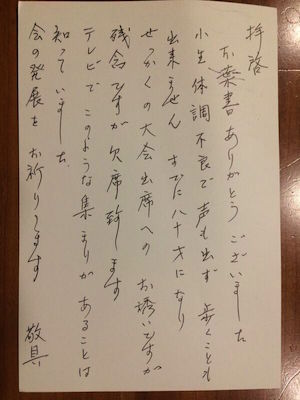 拝啓
お葉書ありがとうございました
小生体調不良で声も出ず歩くことも
出来ません すでに八十才になり
せっかくの大会出席へのお誘いですが
残念ですが欠席致します
テレビでこのような集まりがあることは
知っていました
会の発展をお祈りします
敬具